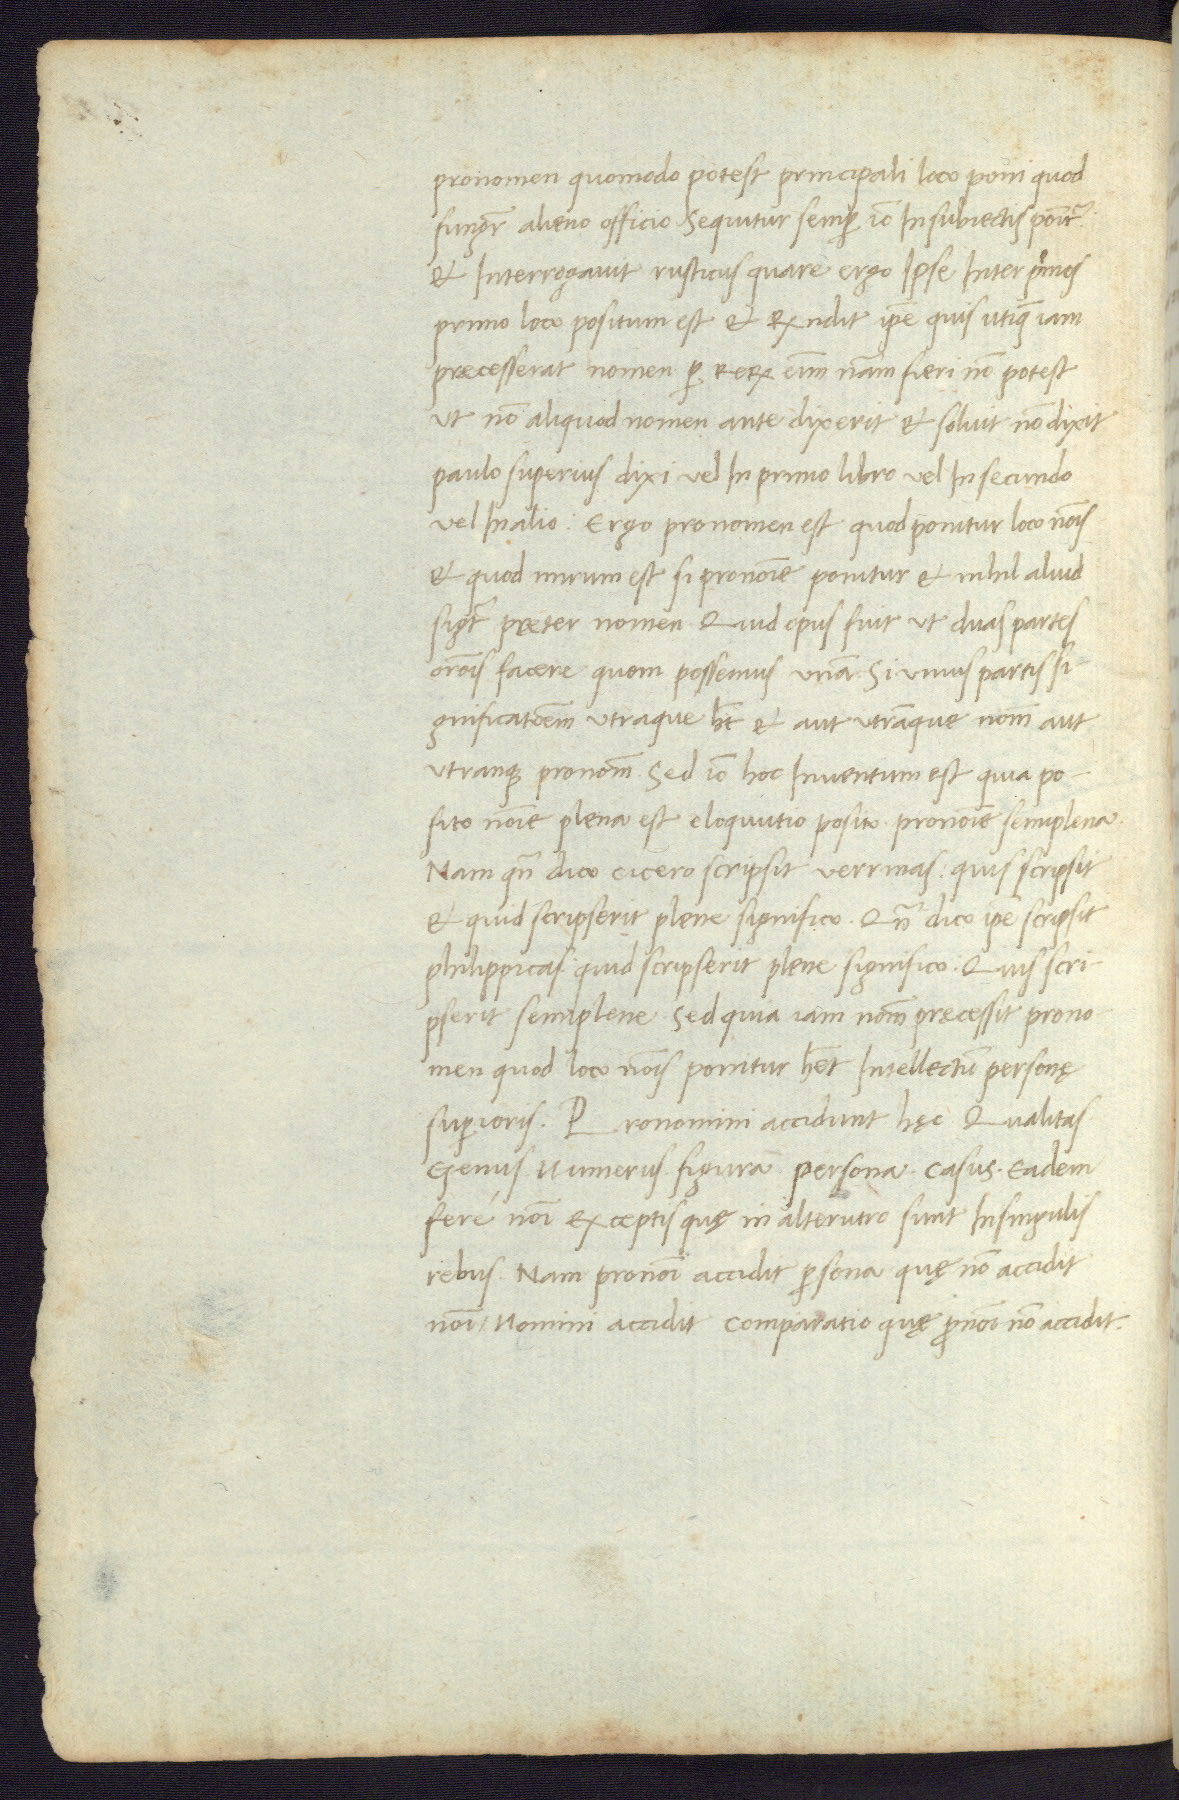 pronomen quomodo potest principali loco poni quod
fungit̃ alieno officio sequitur semp̱ iõ In subiectis ponit̃.
& Interrogauit rusticus quare ergo Ipse Inter pͥmos
primo loco positum est & ndit ip̃e quis utiq̃ iam
precesserat nomen p̱ eim̃ nam̃ fieri nõ potest
ut nõ aliquod nomen ante dixerit & soluit nõ dixit
paulo superius dixi vel In primo libro vel In secundo
vel In alio: Ergo pronomen est quod ponitur loco nõis
& quod mirum est si pronoĩe ponitur & nihil aliud
sigt̃ pręter nomen Quid opus fuit ut duas partes
orõis facere quom possemus unã. Si unius partis si
gnificatõem utraque hẽt & aut utrãque nom̃ aut
utranq; pronom̃. Sed iõ hoc Inuentum est quia po-
sito noĩe plena est eloquutio posito pronoĩe semiplena.
Nam qñ dico cicero scripsit verrinas: quis scripsit
& quid scripserit plene significo. Qñ dico ip̃e scripsit
philippicas quid scripserit plene significo. Quis scri-
pserit semiplene. Sed quia iam nom̃ pręcessit prono
men quod loco nõis ponitur hẽt Intellectũ personę
sup̱ioris. Pronomini accidunt hęc Qualitas
Genus Numerus figura persona. casus. Eadem
feré noĩ exceptis quę in alterutro sunt In singulis
rebus. Nam pronoĩ accidit p̱sona quę nõ accidit
noĩ/ Nomini accidit comparatio quę p̃noĩ nõ accidit.